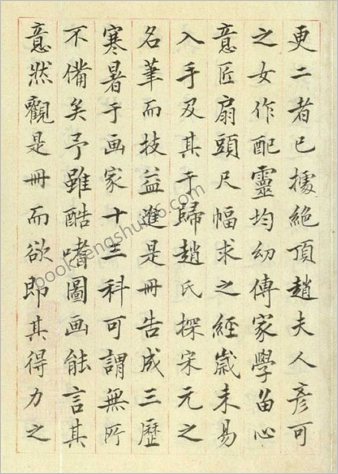 更二者已據絕頂趙夫人彥可
之女作配靈均幼傳家學留心
意匠扇頭尺幅求之經歲未易
入手及其于歸趙氏探宋元之
名筆而技益進是冊告成三歷
寒暑于画家十三科可謂無所
不備矣予雖酷嗜圖画能言其
意然觀是冊而欲即其得力之